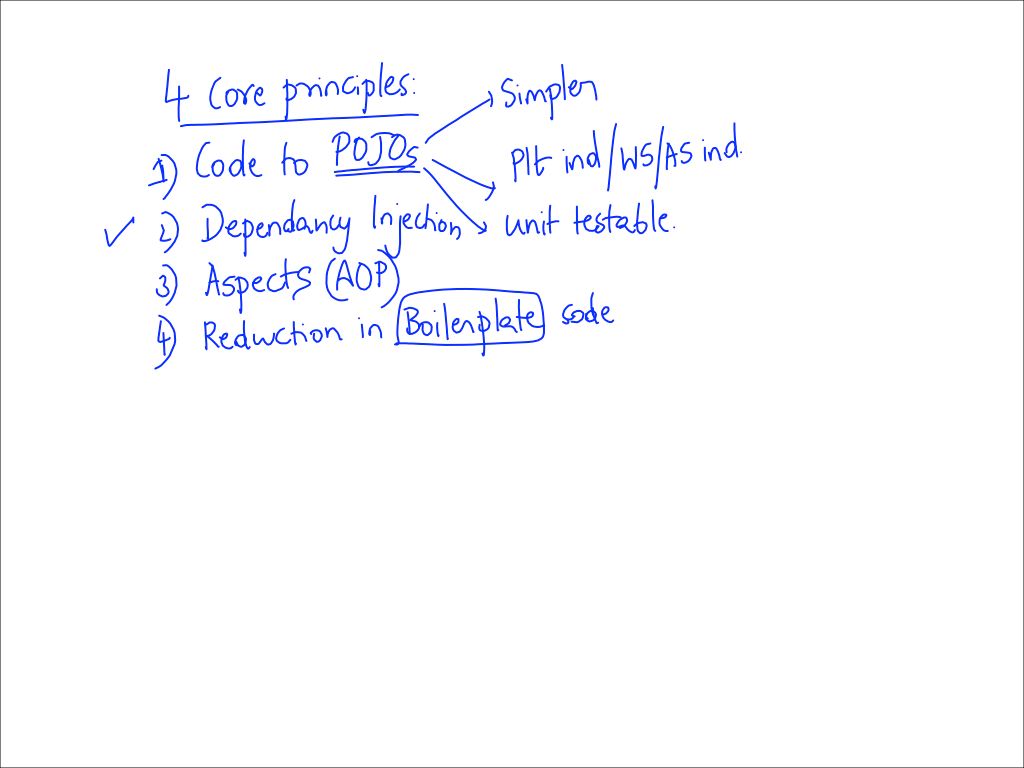 4 Core principles:
1) Code to POJOs
Simpler
Plt ind/WS/AS ind.
unit testable.
2) Dependancy Injection
3) Aspects (AOP)
4) Reduction in Boilerplate code